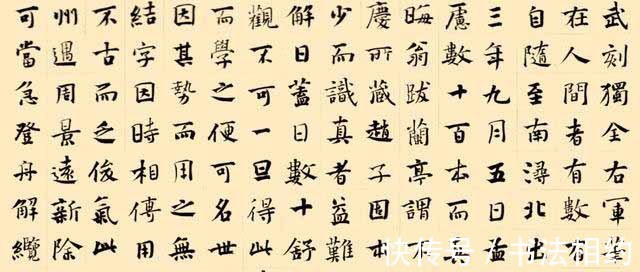 武刻獨全右軍
在人間者有數
自隨至南潯北出
三年九月五日孟
慮數十百本而
晦翁跋蘭亭謂不
慶所藏趙子固本
少而識真者益難
解日蓋日數十舒
觀不可一旦得此
而學之便可名世
因其勢而用之無
結字因時相傳用
不古而乏俊氣此
州遇周景遠新除
可當急登舟解纜
快传号 / 书法相约